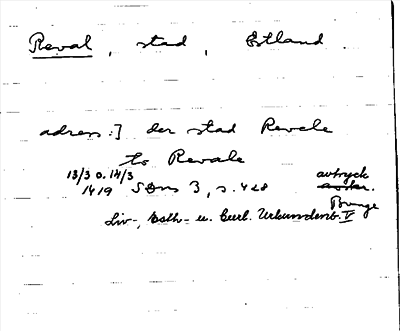 Reval, stad, Estland
adress:] der stad Revele
to Revale
13/3 o. 14/3 avtryck
1419 SDns 3, s. 428
Bunge
Liv-, Esth- u. Curl. Urkundenb. V